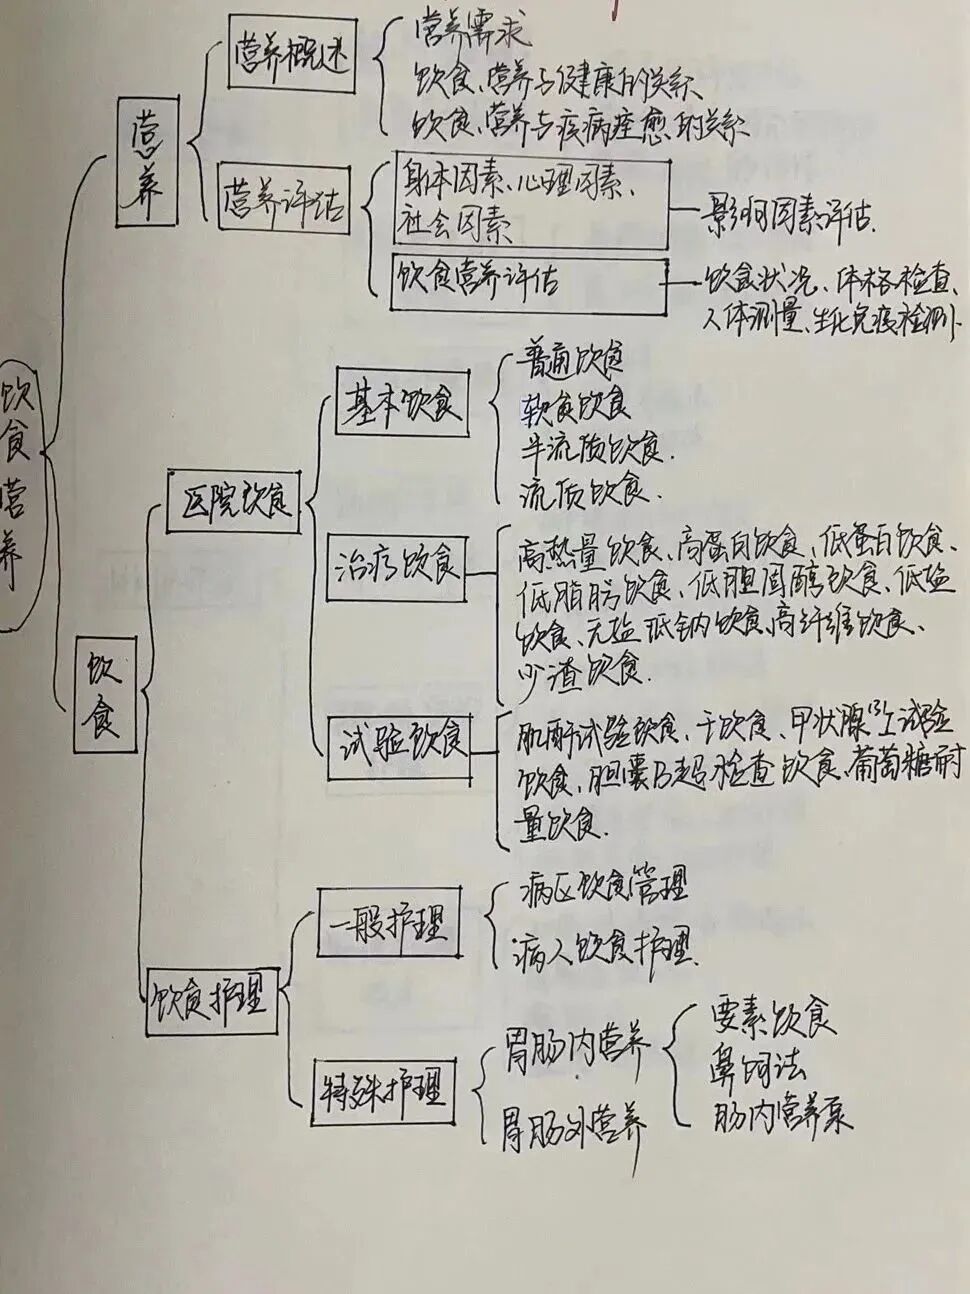 饮食营养
营养
营养概述
营养需求
饮食、营养与健康的关系
饮食、营养与疾病痊愈的关系
营养评估
身体因素、心理因素、
社会因素
影响因素评估.
饮食营养评估
饮食状况、体格检查、
人体测量、生化免疫检测.
饮食
医院饮食
基本饮食
普通饮食
软食饮食
半流质饮食.
流质饮食.
治疗饮食
高热量饮食、高蛋白饮食、低蛋白饮食、
低脂肪饮食、低胆固醇饮食、低盐
饮食、无盐低钠饮食、高纤维饮食、
少渣饮食.
试验饮食
肌酐试验饮食、干饮食、甲状腺¹³¹I试验
饮食、胆囊B超检查饮食、葡萄糖耐
量饮食.
饮食护理
一般护理
病区饮食管理
病人饮食护理.
特殊护理
胃肠内营养
要素饮食
鼻饲法
肠内营养泵
胃肠外营养